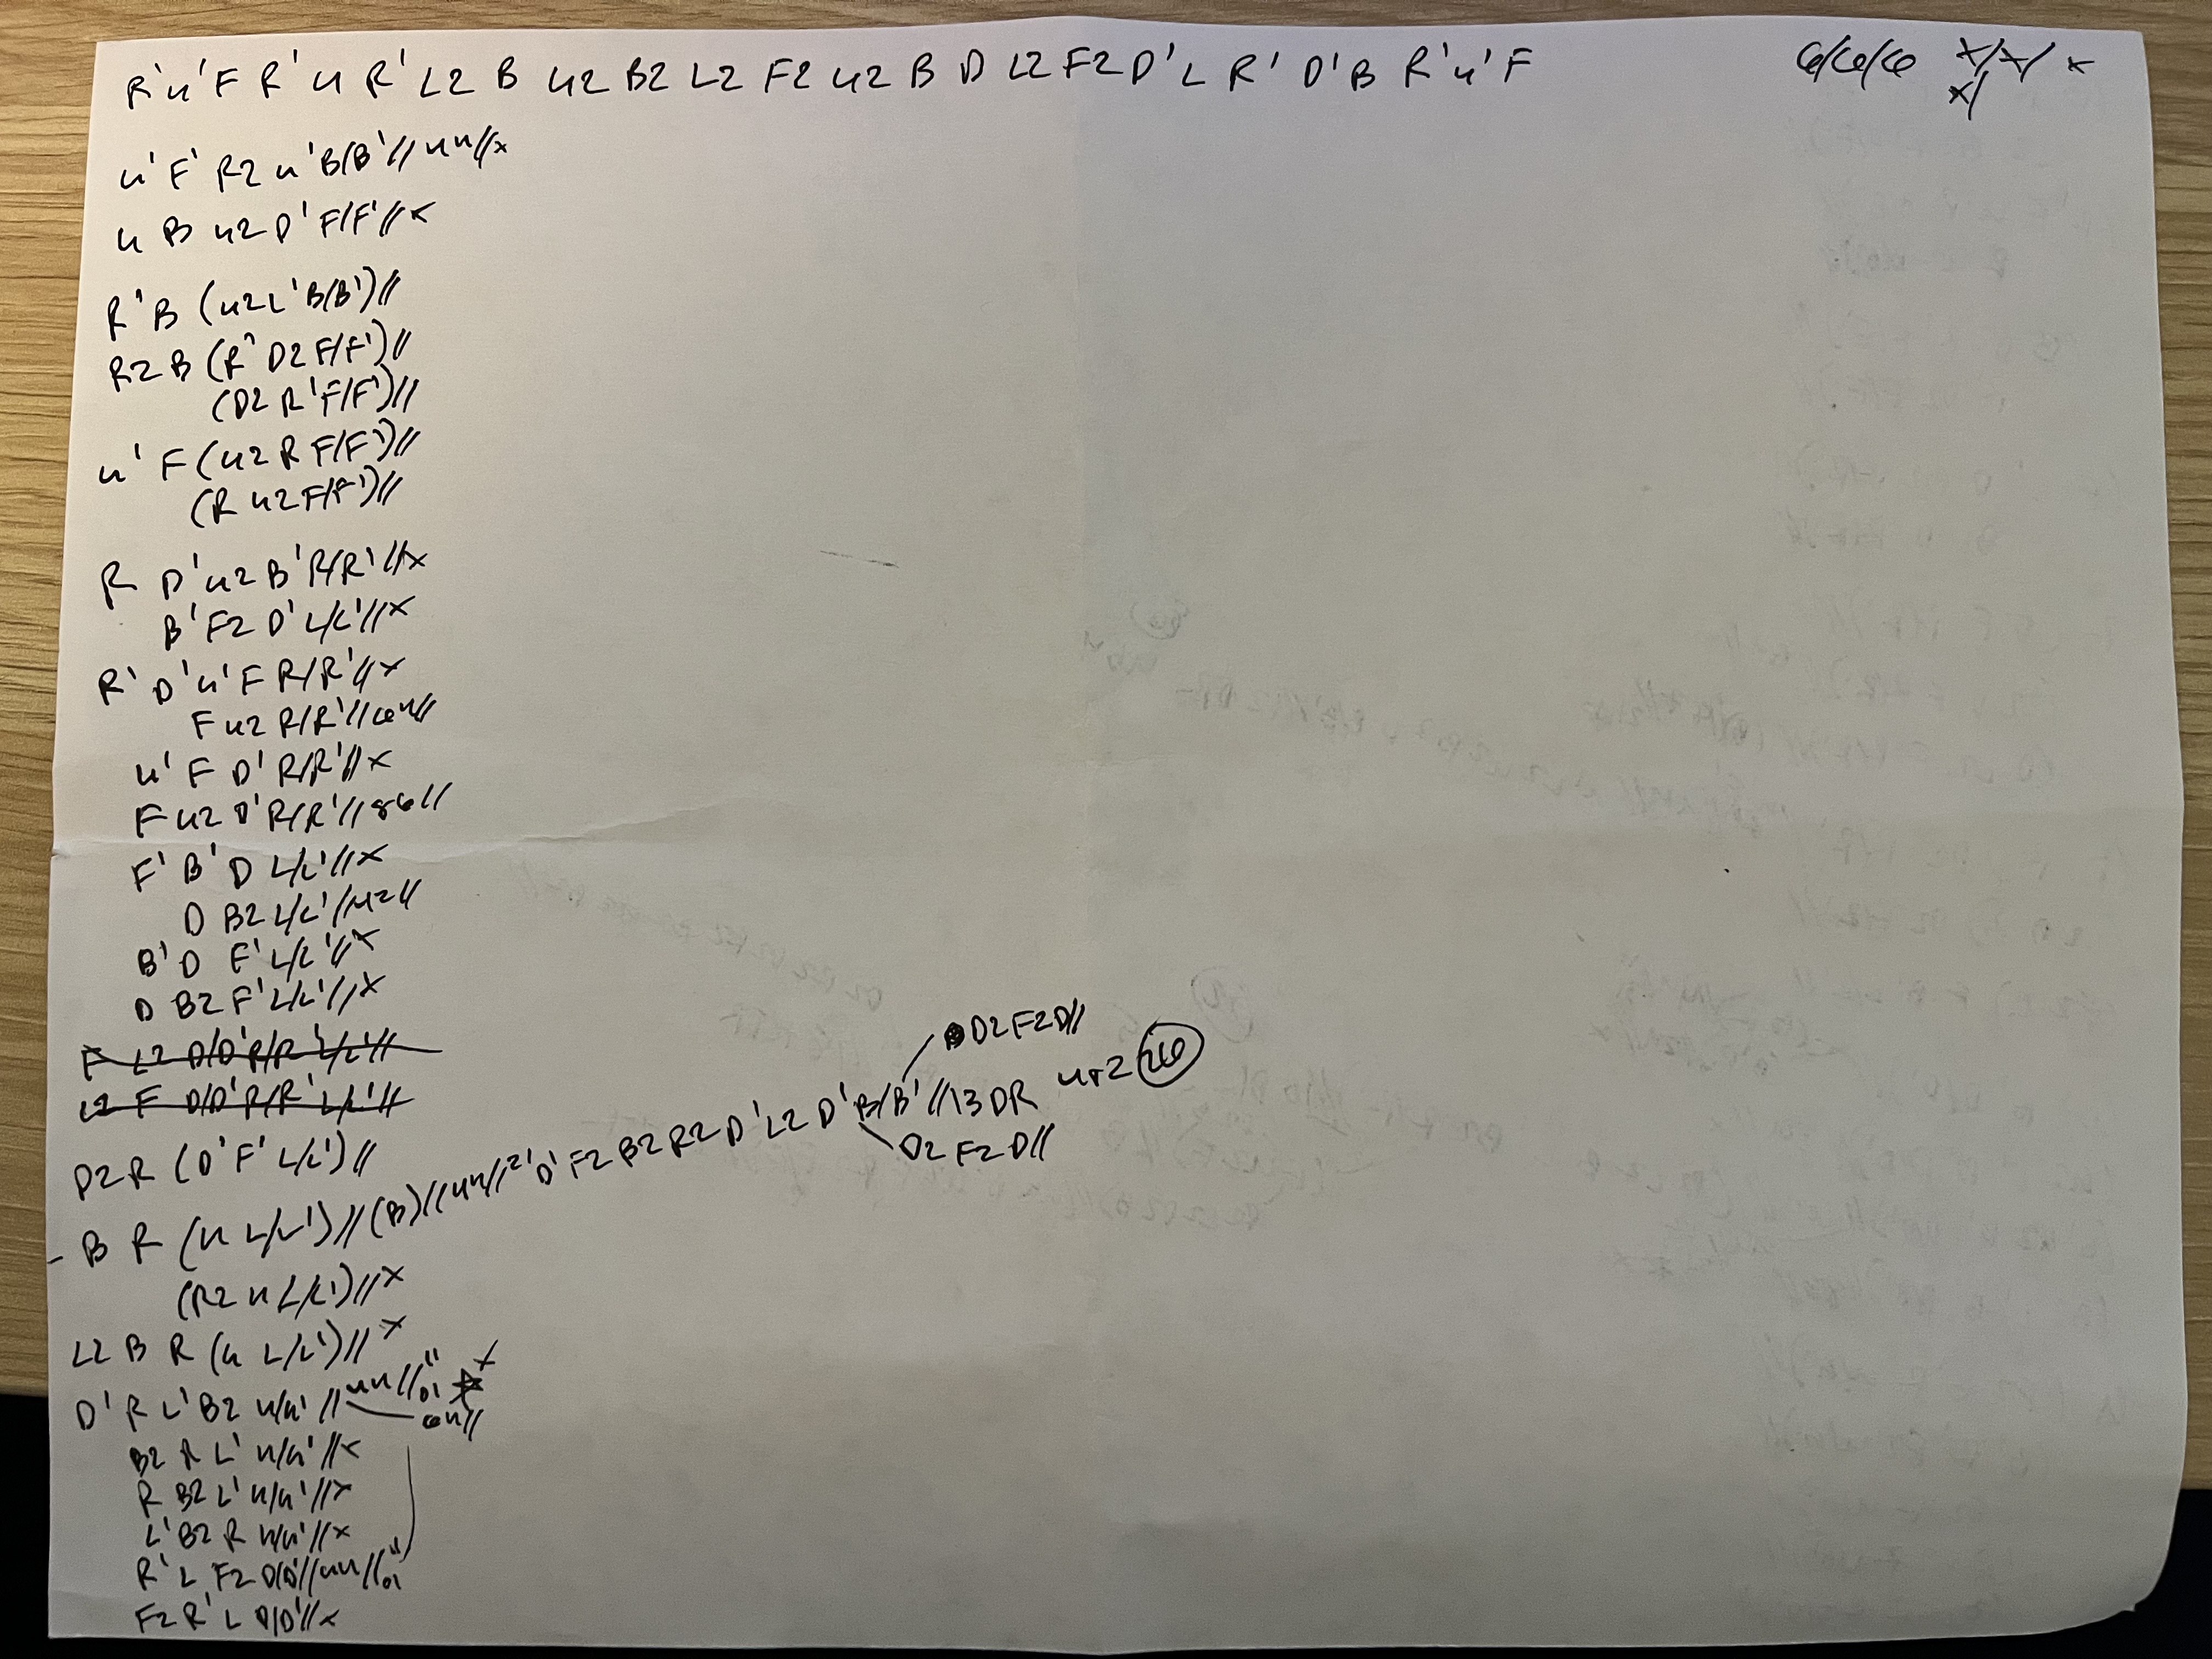 R'u'F R' u R' L2 B u2 B2 L2 F2 u2 B D L2 F2 D' L R' D' B R' u' F
6/6/6 x/x/ x
x/
u' F' R2 u' B/B' // uu // x
u B u2 D' F/F' // x
R' B (u2 L' B/B') //
R2 B (R' D2 F/F') //
(D2 R' F/F') //
u' F (u2 R F/F') //
(R u2 F/F') //
R D' u2 B' R/R' // x
B' F2 D' L/L' // x
R' D' u' F R/R' // x
F u2 R/R' // 6u //
u' F D' R/R' // x
F u2 D' R/R' // 86 //
F' B' D L/L' // x
D B2 L/L' / uz //
B' D F' L/L' // x
D B2 F' L/L' // x
F L2 D/D' R/R' L/L' //
L2 F D/D' R/R' L/L' //
D2 F2 D //
D2 R (D' F' L/L') //
- B R (u L/L') // (B) // uu // 2' D' F2 B2 R2 D' L2 D' B/B' // 13 DR ur2 26
D2 F2 D //
(R2 u L/L') // x
L2 B R (u L/L') // x
D' R L' B2 u/u' // uu // 01" x
6u //
B2 R L' u/u' // x
R B2 L' u/u' // x
L' B2 R u/u' // x
R' L F2 D/D' // uu // 01"
F2 R' L D/D' // x